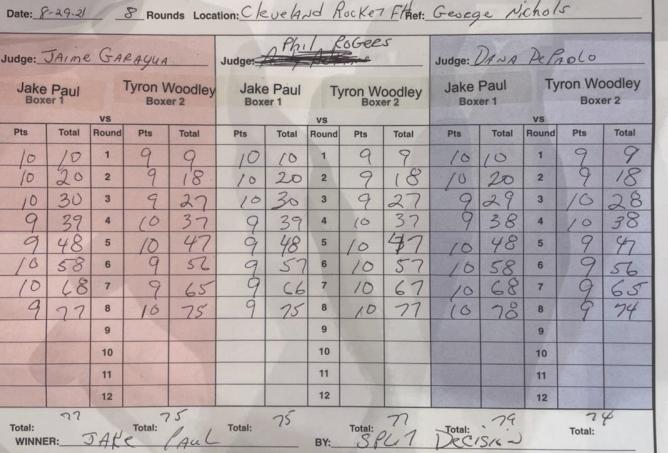 Date: 8-29-21 8 Rounds Location: Cleveland Rocket FH Ref: George Nichols
Phil Rogers
Judge: Jaime Garayua Judge: Judge: Dana DePaolo
Jake Paul Tyron Woodley Jake Paul Tyron Woodley Jake Paul Tyron Woodley
Boxer 1 Boxer 2 Boxer 1 Boxer 2 Boxer 1 Boxer 2
vs vs vs
Pts Total Round Pts Total Pts Total Round Pts Total Pts Total Round Pts Total
10 10 1 9 9 10 10 1 9 9 10 10 1 9 9
10 20 2 9 18 10 20 2 9 18 10 20 2 9 18
10 30 3 9 27 10 30 3 9 27 9 29 3 10 28
9 39 4 10 37 9 39 4 10 37 9 38 4 10 38
9 48 5 10 47 9 48 5 10 47 10 48 5 9 47
10 58 6 9 56 9 57 6 10 57 10 58 6 9 56
10 68 7 9 65 9 66 7 10 67 10 68 7 9 65
9 77 8 10 75 9 75 8 10 77 10 78 8 9 74
9 9 9
10 10 10
11 11 11
12 12 12
Total: 77 Total: 75 Total: 75 Total: 77 Total: Total: 74
WINNER: Jake Paul BY: Split Decision